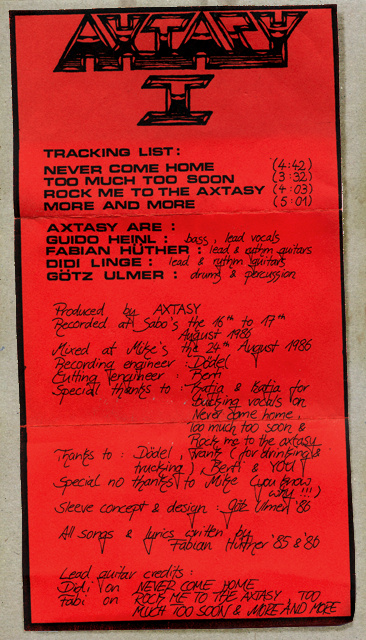 AXTASY
I
TRACKING LIST:
NEVER COME HOME (4:42)
TOO MUCH TOO SOON (3:32)
ROCK ME TO THE AXTASY (4:03)
MORE AND MORE (5:01)
AXTASY ARE :
GUIDO HEINL : bass, lead vocals
FABIAN HÜTHER : lead & rythm guitars
DIDI LINGE : lead & rythm guitars
GÖTZ ULMER : drums & percussion
Produced by AXTASY
Recorded at Sabo's the 16th to 17th
August 1986
Mixed at Mike's the 24th August 1986
Recording engineer : Dödel
Cutting engineer : Berti
Special thanks to : Katja & for
vocals on
Never come home,
Too much too soon &
Rock me to the axtasy
Thanks to : Dödel, Frank (for drinking &
trucking), Berti & YOU!
Special no thanks to Mike (you know
why !!!)
Sleeve concept & design : Götz Ulmer '86
All songs & lyrics written by
Fabian Hüther '85 & '86
Lead guitar credits :
Didi on NEVER COME HOME
Fabi on ROCK ME TO THE AXTASY, TOO
MUCH TOO SOON & MORE AND MORE